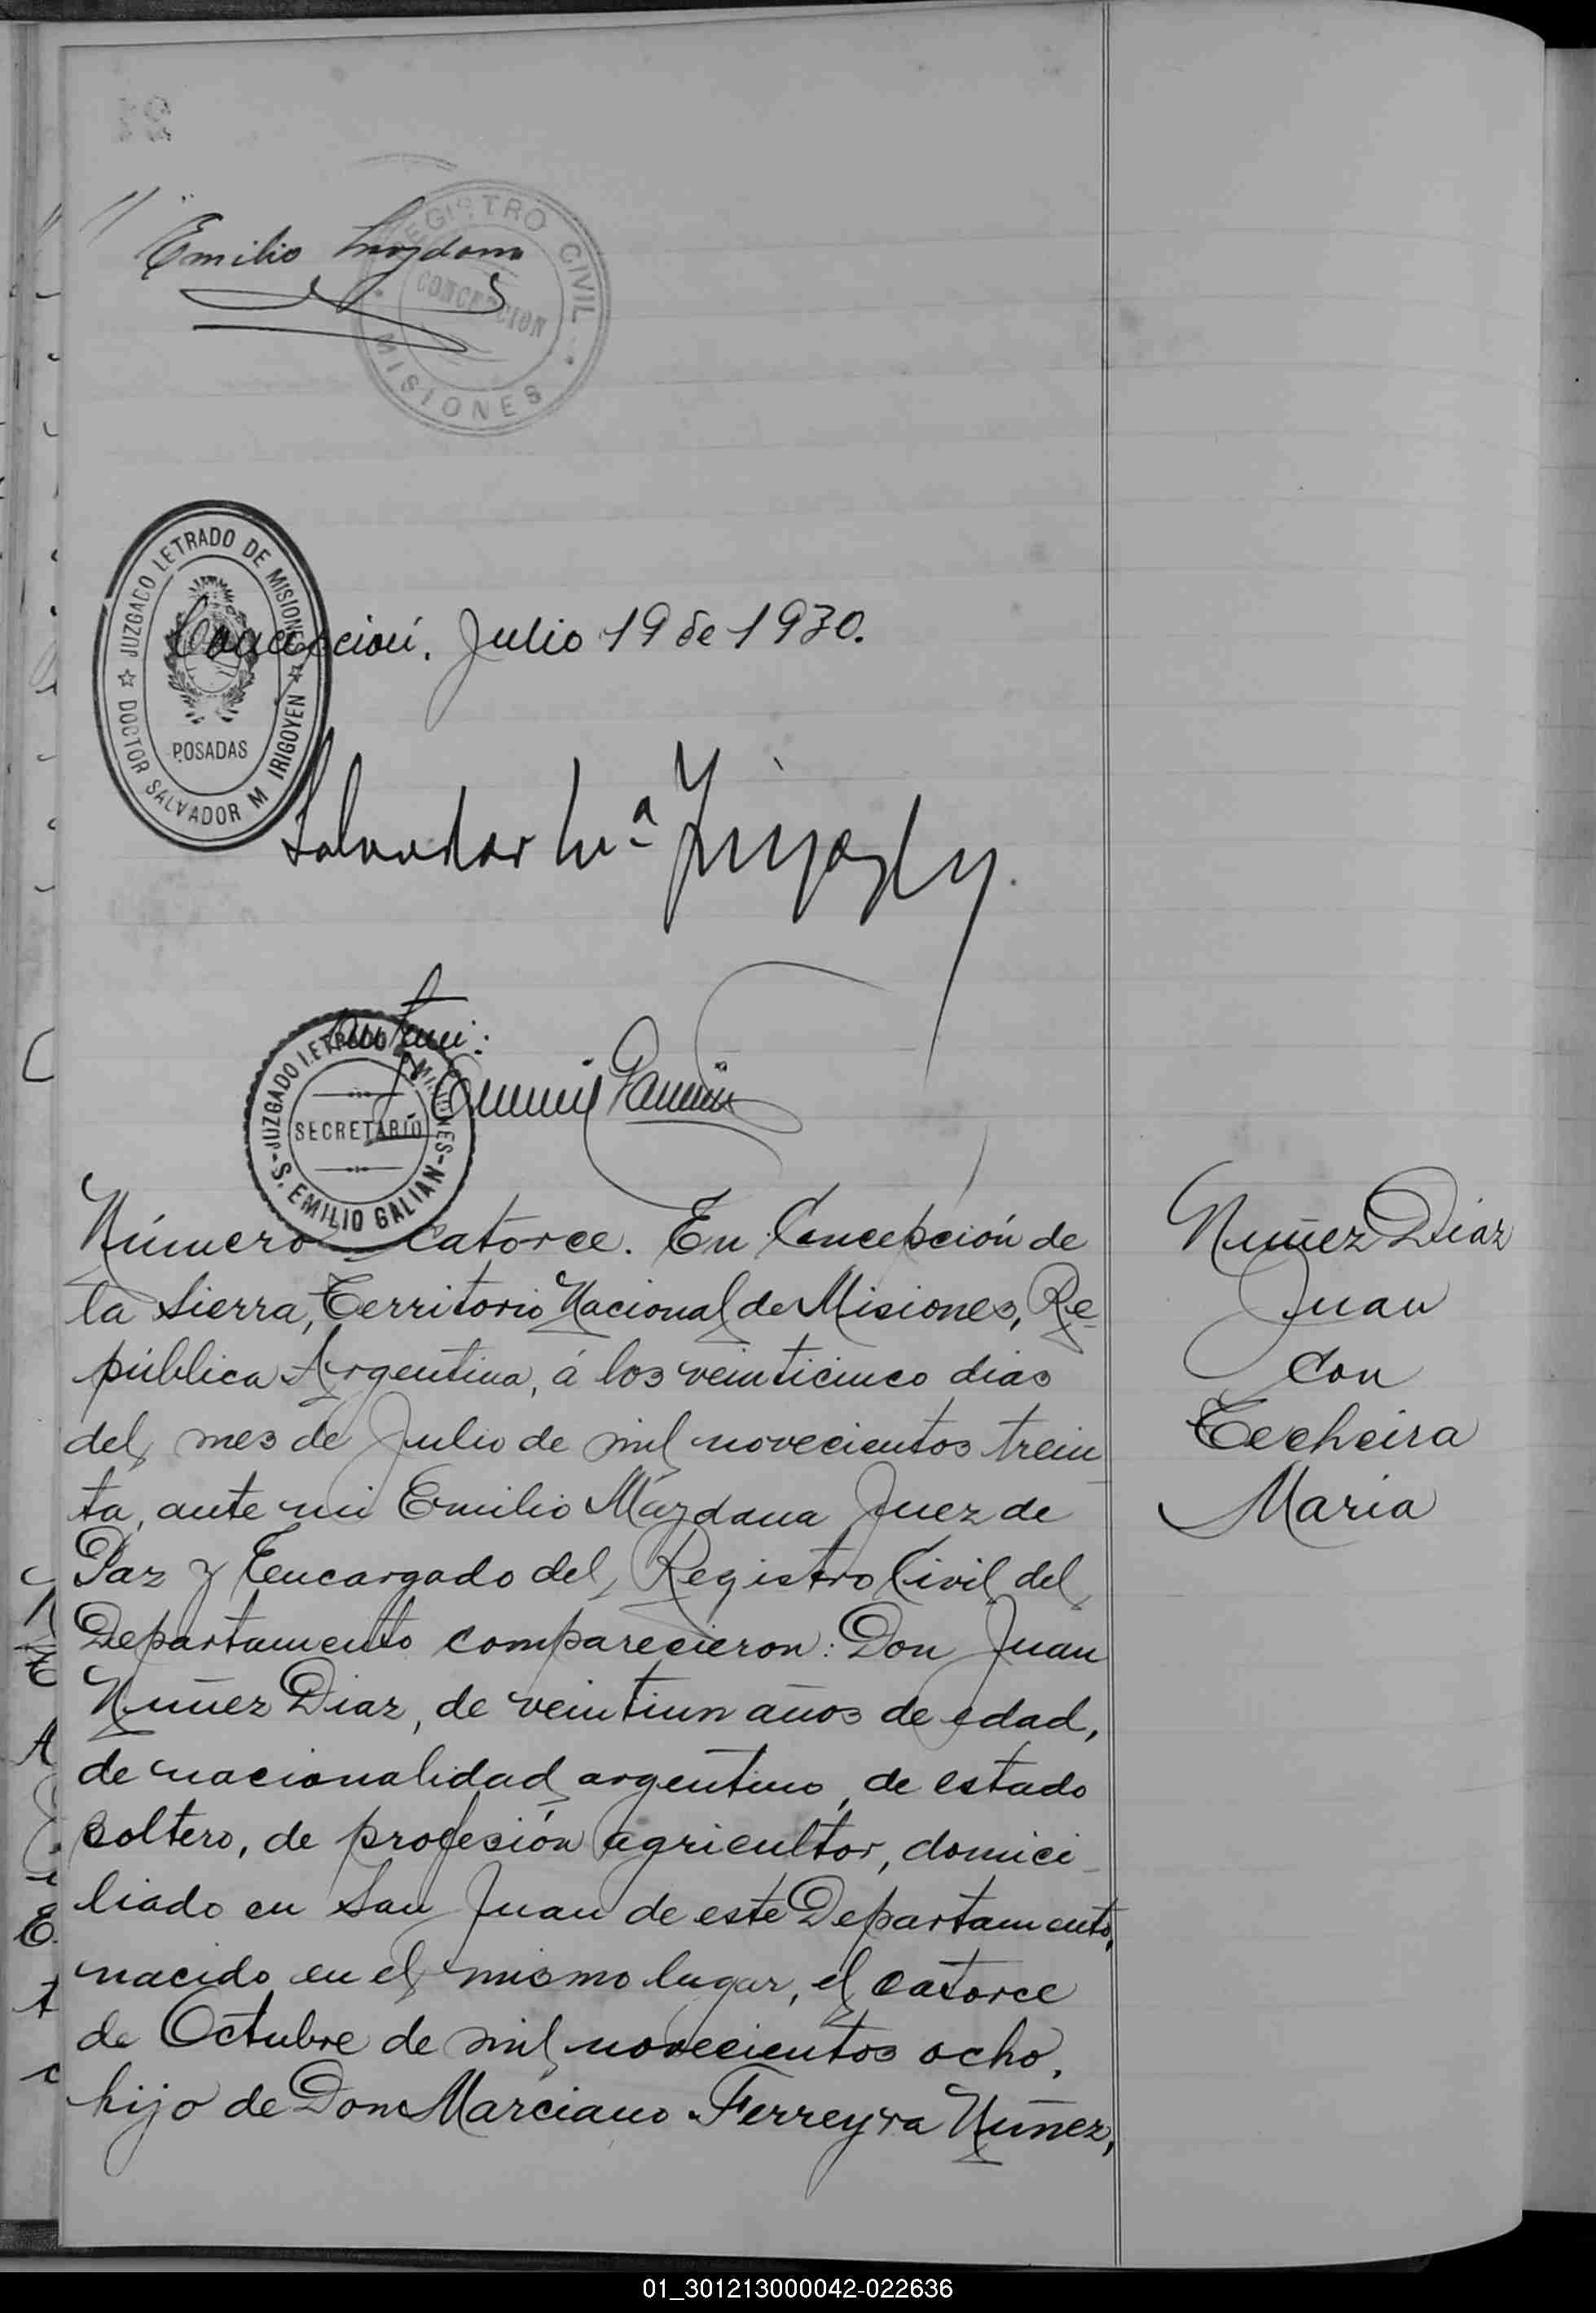 // Emilio Mazdana
REGISTRO CIVIL
CONCEPCION
MISIONES
JUZGADO LETRADO DE MISIONES
POSADAS
DOCTOR SALVADOR M IRIGOYEN
Concepción, Julio 19 de 1930.
Salvador Mª Irigoyen
Ante mi:
JUZGADO LETRADO MISIONES
SECRETARIO
S. EMILIO GALIAN
Número catorce. En Concepción de
la Sierra, Territorio Nacional de Misiones, Re=
pública Argentina, á los veinticinco dias
del mes de Julio de mil novecientos trein
ta, ante mi Emilio Mazdana Juez de
Paz y Encargado del Registro Civil del
Departamento comparecieron: Don Juan
Nuñez Diaz, de veintiun años de edad,
de nacionalidad argentino, de estado
soltero, de profesión agricultor, domici-
liado en San Juan de este Departamento,
nacido en el mismo lugar, el catorce
de Octubre de mil novecientos ocho,
hijo de Don Marciano Ferreyra Nuñez,
Nuñez Diaz
Juan
con
Techeira
Maria
01_301213000042-022636